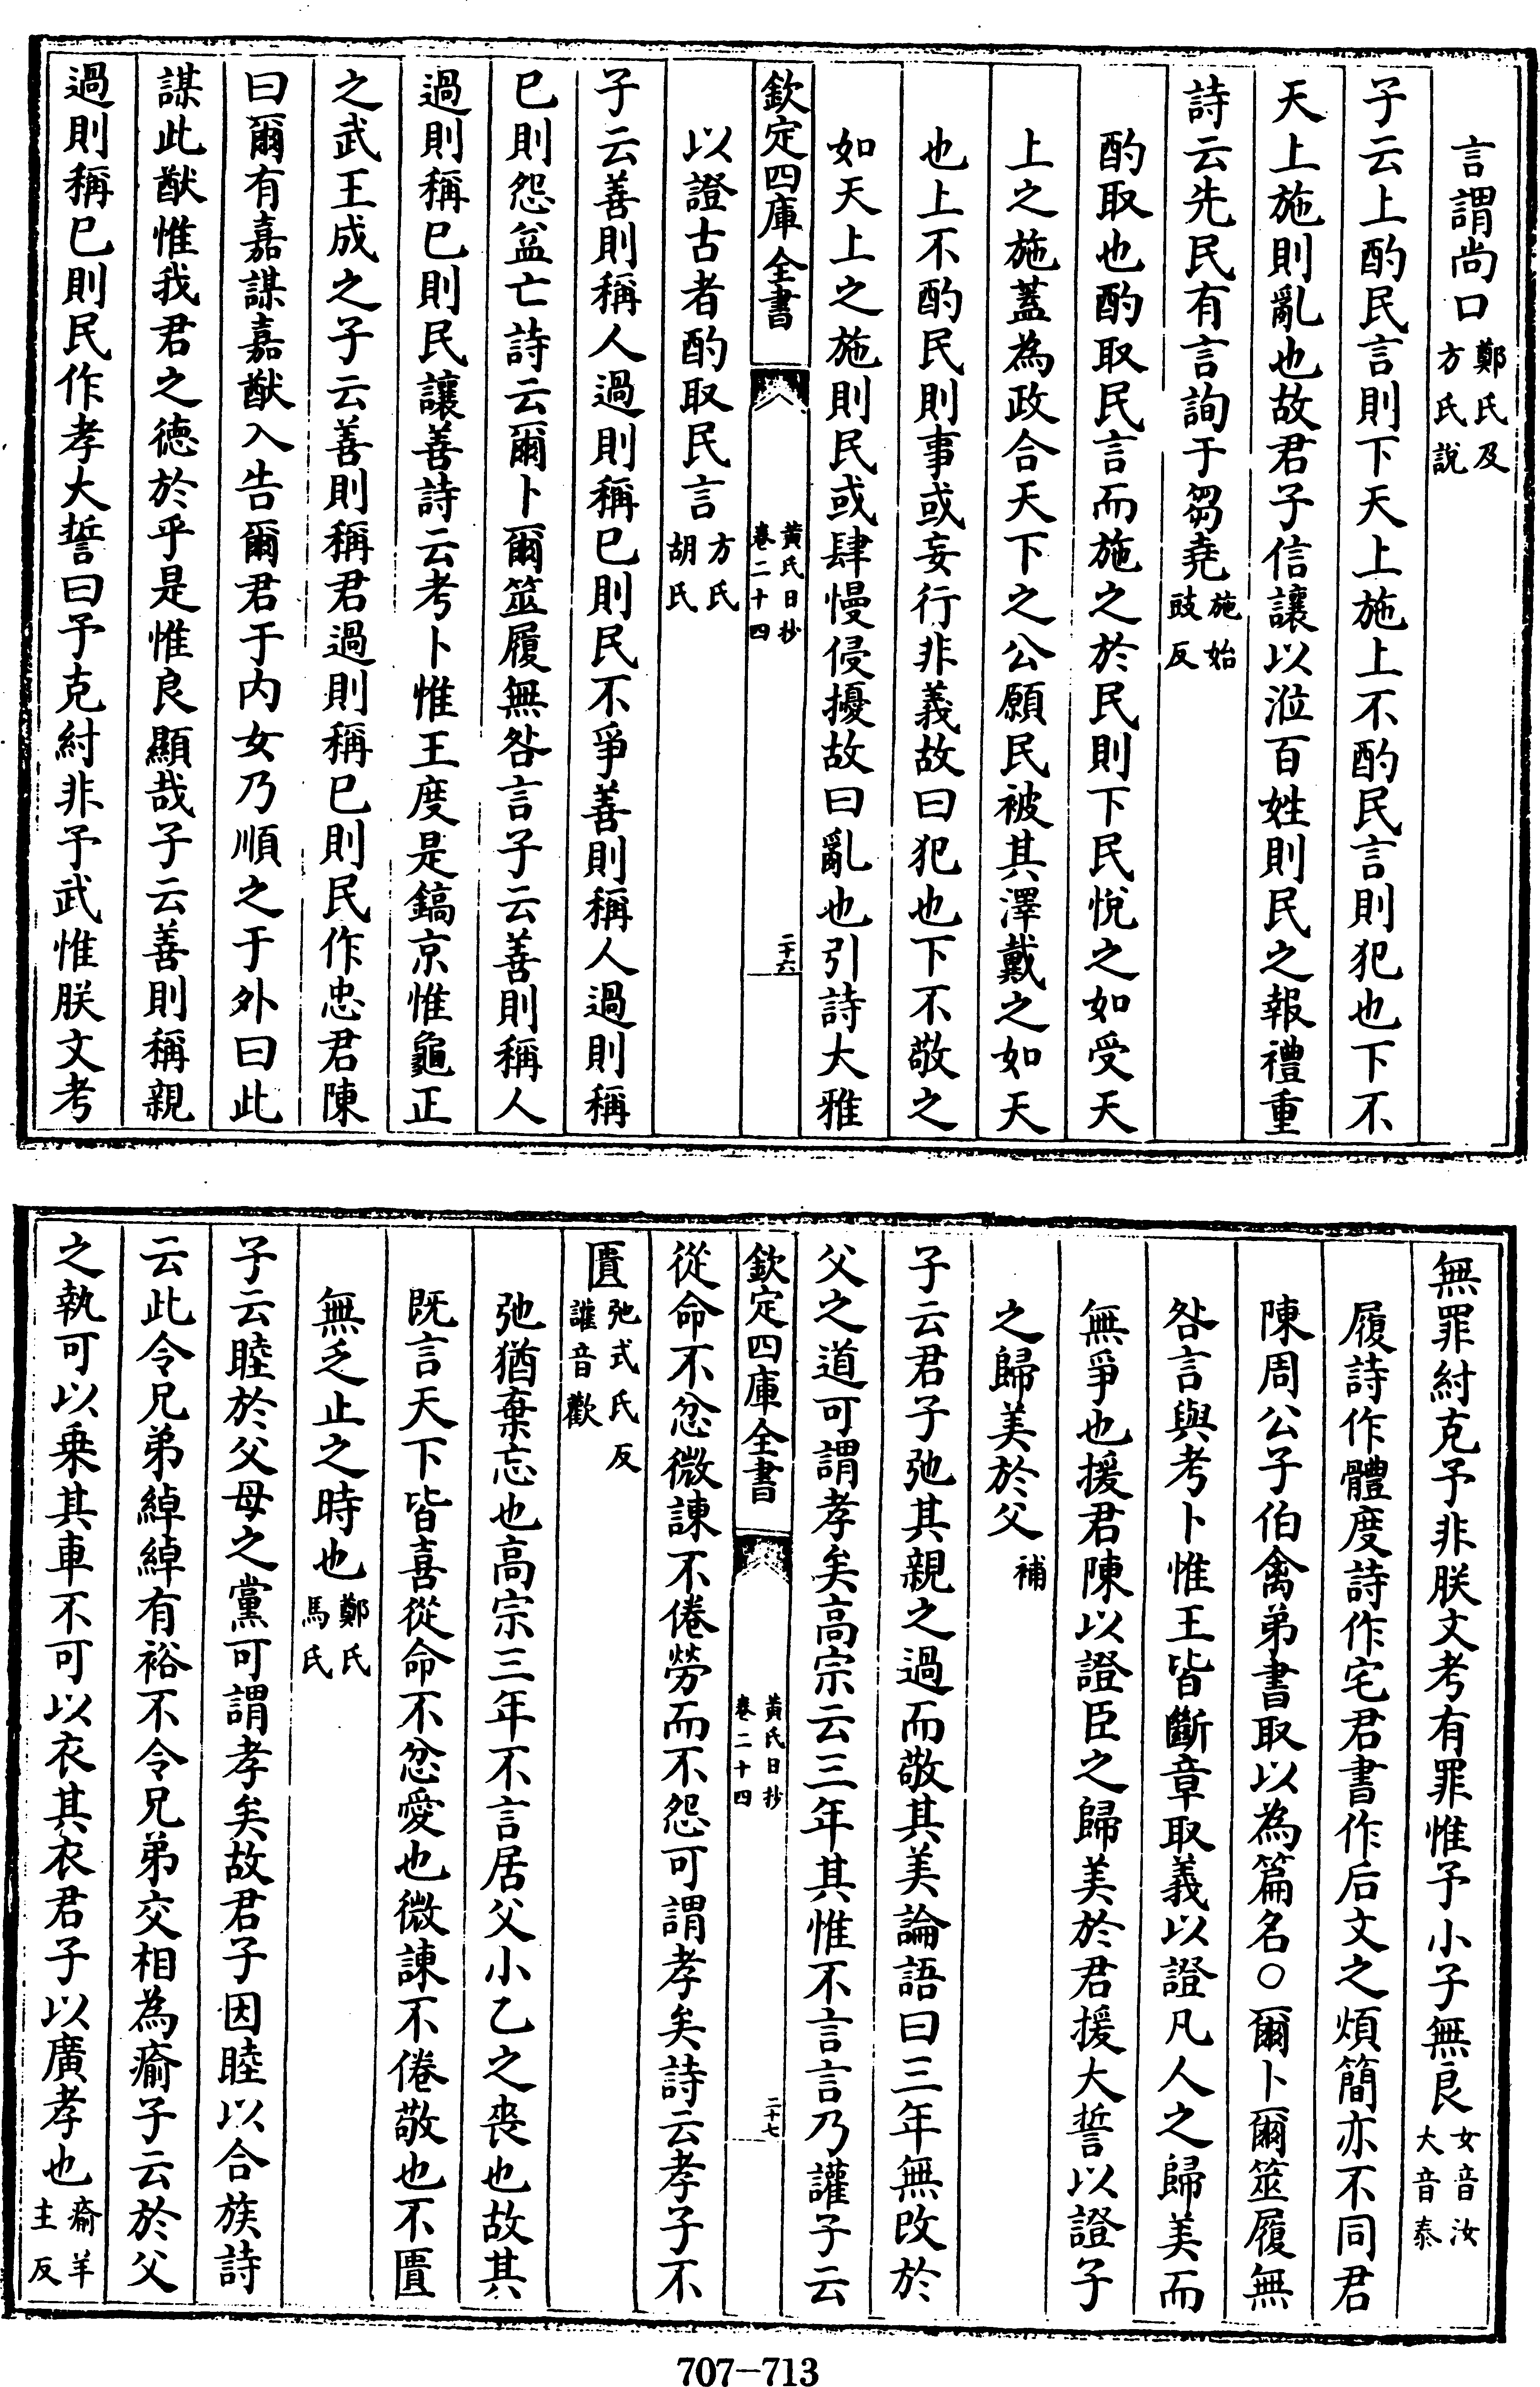 言謂尚口鄭氏及方氏說
子云上酌民言則下天上施上不酌民言則犯也下不
天上施則亂也故君子信讓以涖百姓則民之報禮重
詩云先民有言詢于芻蕘施始豉反
酌取也酌取民言而施之於民則下民悅之如受天
上之施蓋為政合天下之公願民被其澤戴之如天
也上不酌民則事或妄行非義故曰犯也下不敬之
如天上之施則民或肆慢侵擾故曰亂也引詩大雅
欽定四庫全書 黃氏日抄卷二十四 二十六
以證古者酌取民言方氏胡氏
子云善則稱人過則稱已則民不爭善則稱人過則稱
已則怨益亡詩云爾卜爾筮履無咎言子云善則稱人
過則稱已則民讓善詩云考卜惟王度是鎬京惟龜正
之武王成之子云善則稱君過則稱已則民作忠君陳
曰爾有嘉謀嘉猷入告爾君于内女乃順之于外曰此
謀此猷惟我君之德於乎是惟良顯哉子云善則稱親
過則稱已則民作孝大誓曰予克紂非予武惟朕文考
無罪紂克予非朕文考有罪惟予小子無良女音汝大音泰
履詩作體度詩作宅君書作后文之煩簡亦不同君
陳周公子伯禽弟書取以為篇名○爾卜爾筮履無
咎言與考卜惟王皆斷章取義以證凡人之歸美而
無爭也援君陳以證臣之歸美於君援大誓以證子
之歸美於父補
子云君子弛其親之過而敬其美論語曰三年無改於
父之道可謂孝矣高宗云三年其惟不言言乃讙子云
欽定四庫全書 黃氏日抄卷二十四 二十七
從命不忿微諫不倦勞而不怨可謂孝矣詩云孝子不
匱弛式氏反讙音歡
弛猶棄忘也高宗三年不言居父小乙之喪也故其
既言天下皆喜從命不忿愛也微諫不倦敬也不匱
無乏止之時也鄭氏馬氏
子云睦於父母之黨可謂孝矣故君子因睦以合族詩
云此令兄弟綽綽有裕不令兄弟交相為瘉子云於父
之執可以乗其車不可以衣其衣君子以廣孝也瘉羊主反
707-713